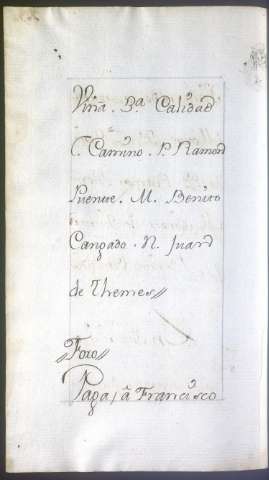 Viña. 3ª Calidad
C. Camino. P. Ramon
Puente. M. Benito
Cangado. N. Juan
de Themes //
Foro //
Paga / â Francisco